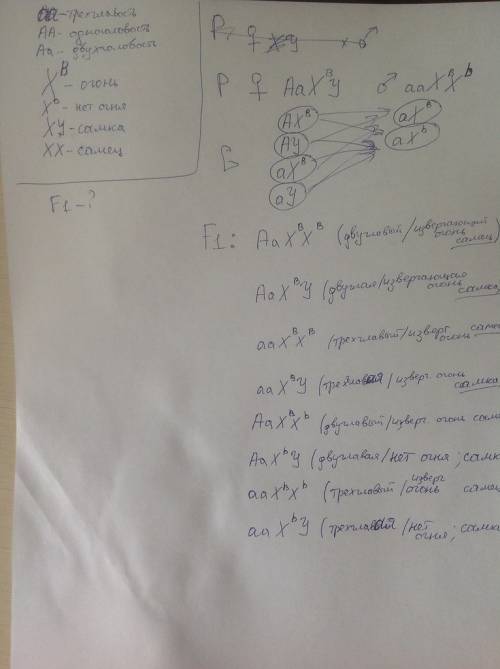 аа - трехглавость
АА - одноглавость
Аа - двухглавость
Xᴮ - огонь
Xᵇ - нет огня
XY - самка
XX - самец
F1 - ?
P, ♀ XY x ♂
P ♀ AaXᴮY ♂ aaXᴮXᵇ
G
AXᴮ
AY
aXᴮ
aY
aXᴮ
aXᵇ
F1: AaXᴮXᴮ (двуглавый/извергающий огонь самец)
AaXᴮY (двуглая/извергающая огонь самка
aaXᴮXᴮ (трехглавый/изверг. огонь саме
aaXᴮY (трехглавая/изверг. огонь самка
AaXᴮXᵇ (двуглавый/изверг. огонь саме
AaXᵇY (двуглавая/нет огня; самк
aaXᵇXᵇ (трехглавый/изверг огонь самец
aaXᵇY (трехглавой/нет огня; самк